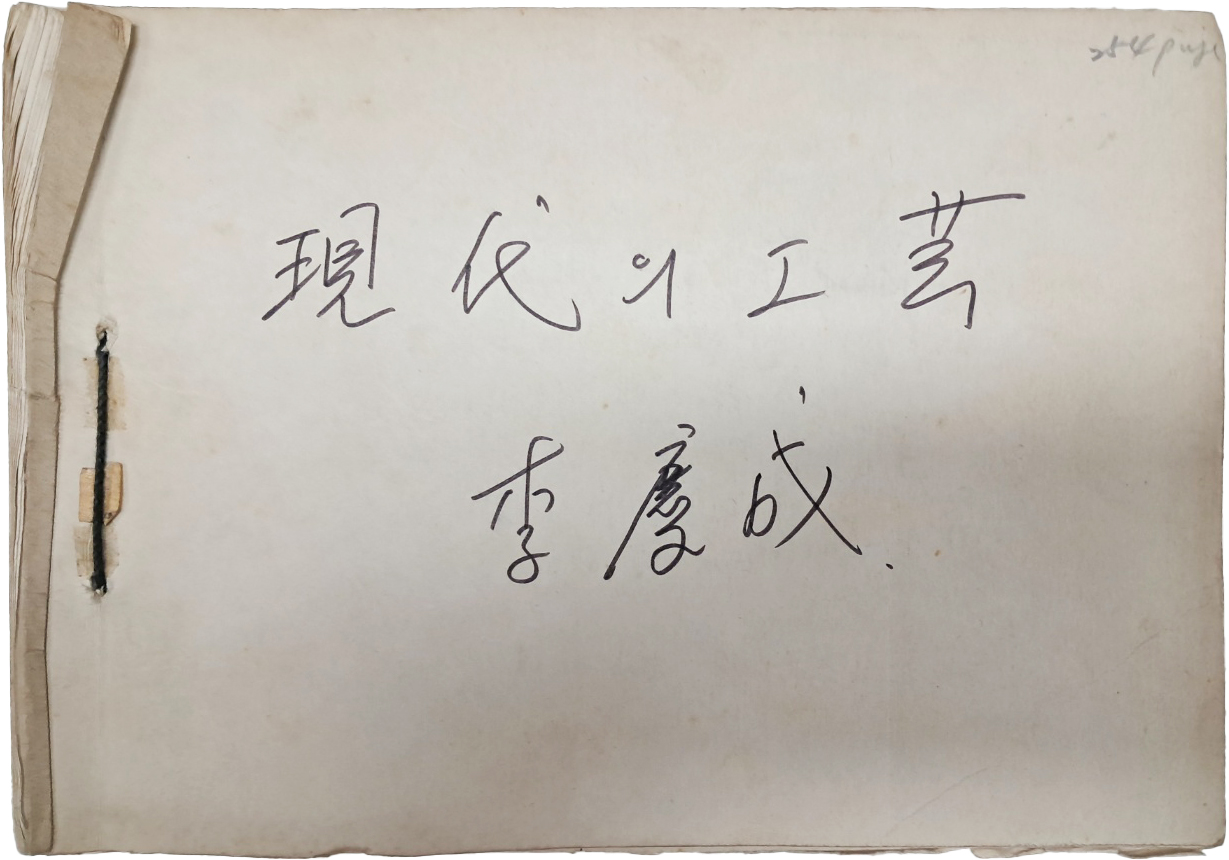 254 page
現代의 工芸
李慶成.